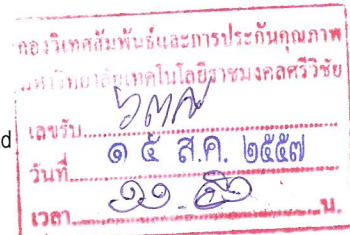 กองวิเทศสัมพันธ์และการประกันคุณภาพ
มหาวิทยาลัยเทคโนโลยีราชมงคลศรีวิชัย
เลขรับ
วันที่ ๑ ๕ ส.ค. ๒๕๕๗
เวลา น.